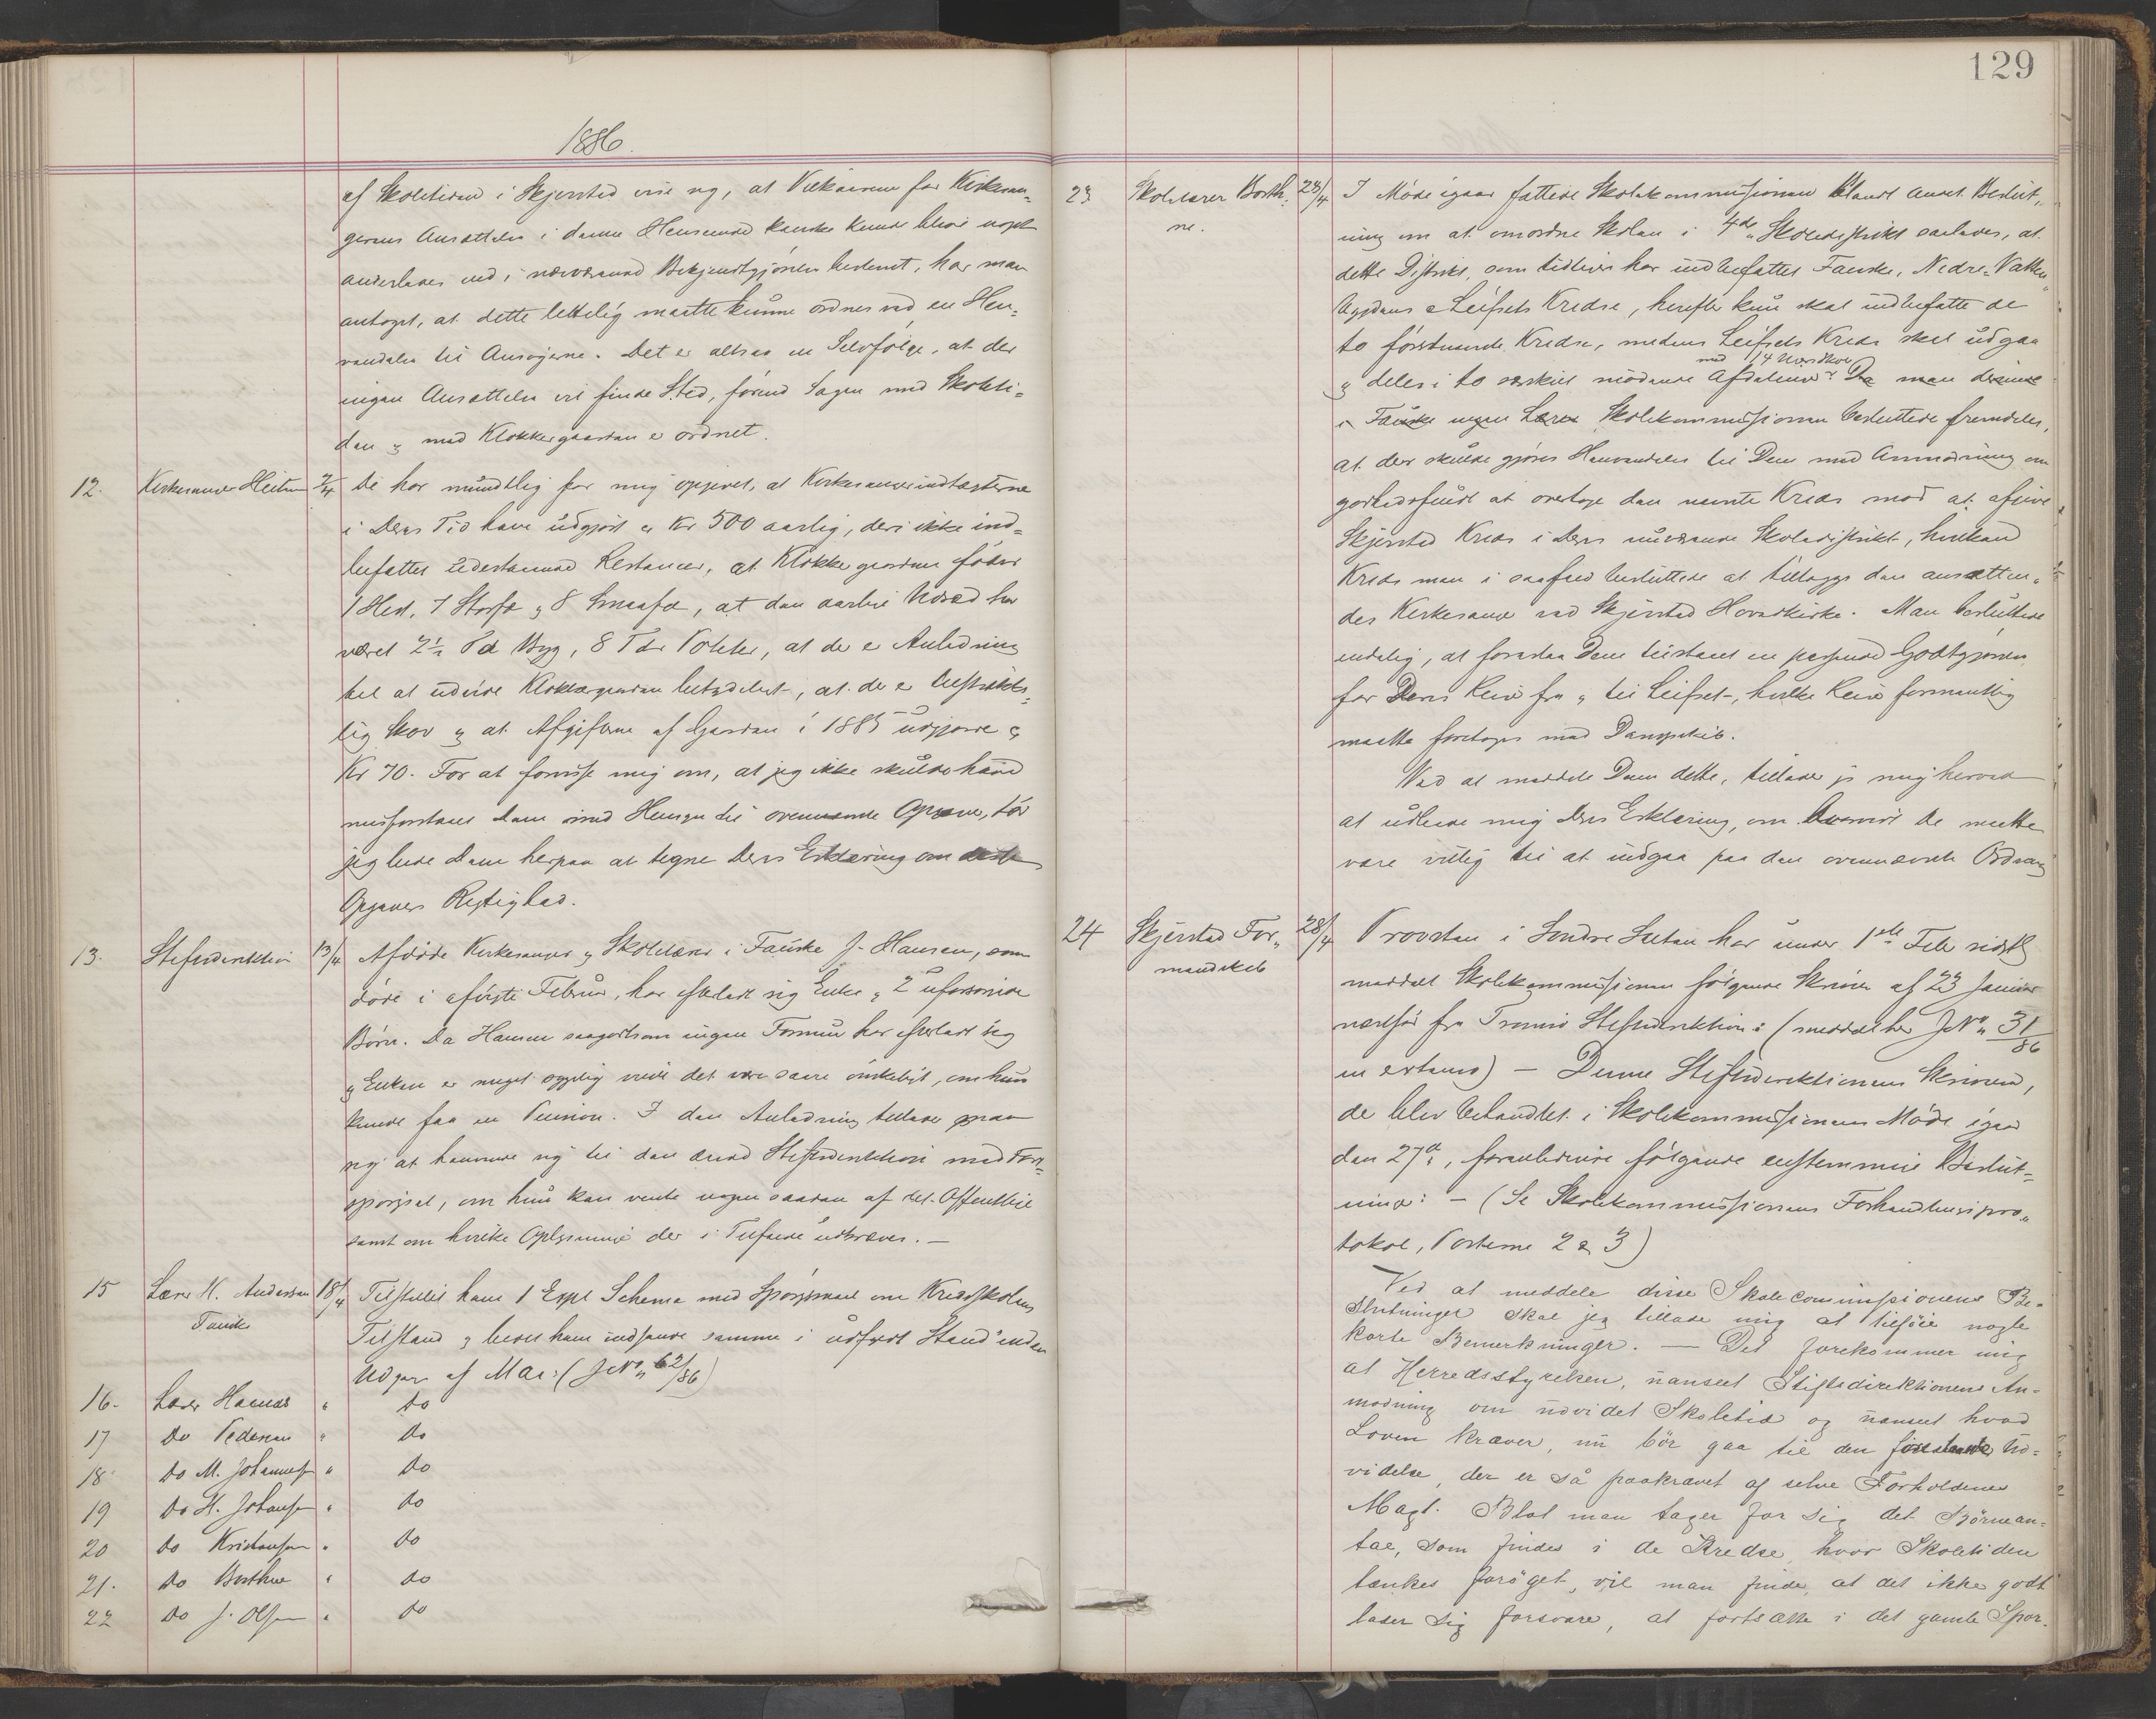 129
1886.
af Skoletiden i Skjerstad vise sig, at Vilkaarene for Kirkesan-
gerens Ansættelse i denne Henseende kanske kunde blive noget
anderledes end i nærværende Bekjendtgjørelse bestemt, har man
antaget, at dette lettelig maatte kunne ordnes ved en Hen-
vendelse til Ansøgerne. Det er altsaa en Selvfølge, at der
ingen Ansættelse vil finde Sted, førend Sagen med Skoleti-
den og med Klokkergaarden er ordnet.
12. Kirkesanger Heitm 7/4 De har mundtlig for mig opgivet, at Kirkesangerindtægterne
i Deres Tid have udgjort ca Kr 500 aarlig, deri ikke ind-
befattet udestaaende Restancer, at Klokkergaarden föder
1 Hest, 7 Storfæ og 8 Smaafæ, at den aarlige Udsæd har
været 2½ Td Byg, 8 Tdr Poteter, at der er Anledning
til at udvide Klokkergaarden betydeligt, at der er
lig Skov og at Afgifterne af Gaarden i 1885 udgjorde ca
Kr 70. For at forvisse mig om, at jeg ikke skulde have
misforstaaet Dem med Hensyn til ovennævnte Opgave, tör
jeg bede Dem herpaa at tegne Deres Erklæring om dette
Opgaves Rigtighed.
13. Stiftsdirektion 13/4 Afdøde Kirkesanger og Skolelærer i Fauske J. Hansen, som
døde i afvigte Februar, har efterladt sig Enke og 2 uforsørgede
Börn. Da Hansen saagodtsom ingen Formue har efterladt sig
og Enken er meget sygelig vilde det være saare ønskeligt, om hun
kunde faa en Pension. I den Anledning tillader man
sig at henvende sig til den ærede Stiftsdirektion med For-
spørgsel, om hun kan vente nogen saadan af det Offentlige
samt om hvilke Oplysninger der i Tilfælde udkræves. —
15 Lærer H. Andersen 18/4 Tilstillet ham 1 Expl Schema med Spörgsmaal om Kredsskolens
Fauske Tilstand og bedet ham indsende samme i udfyldt Stand inden
Udgang af Mai: (J No 62/86)
16. Lærer Hannes " do
17 Do Pedersen " do
18 Do M. Johannesen " do
19 Do H. Johansen " do
20 Do Kristiansen " do
21. Do Borthne " do
22 Do J. Olsen " do
23 Skolelærer Borth- 28/4 I Møde igaar fattede Skolekommissionen blandt andet Beslut-
ne. ning om at omordne Skolen i 4de Skoledistrikt saaledes, at
dette Distrikt, som tidligere har indbefattet Fauske, Nedre-Vatten,
Bygdens & Leifsets Kredse, herefter kun skal indbefatte de
to førstnævnte Kredse, medens Leifsets Kreds skal udgaa
med 14
og deles i to særskilt mødende Afdelinger. Da man desuden
i Fauske ingen Lærer Skolekommissionen besluttede fremdeles,
at der skulde gjøres Henvendelse til Dem med Anmodning om
godhedsfuldt at overtage den nævnte Kreds mod at afgive
Skjerstad Kreds i Deres nuværende Skoledistrikt, hvilken
Kreds man i saafald besluttede at tillægge den ansætten-
des Kirkesanger ved Skjerstad Hovedkirke. Man besluttede
endelig, at foreslaa Dem tilstaaet en passende Godtgjørelse
for Deres Reise fra og til Leifset, hvilke Reise formentlig
maatte foretages med Dampskib.
Ved at meddele Dem dette, tillader jeg mig herved
at udbede mig Deres Erklæring, om hvorvidt De maatte
være villig til at indgaa paa den ovennævnte Ordning
24 Skjerstad For- 28/4 Provsten i Søndre Salten har under 1ste Febr sidstl
mandskab meddelt Skolekommissionen følgende Skrivelse af 23 Januar
næstfør fra Tromsø Stiftsdirektion: (meddeltes J No 31/86
in extenso) — Denne Stiftsdirektionens Skrivelse,
der blev behandlet i Skolekommissionens Møde igaar
den 27de, foranledigede følgende enstemmige Beslut-
ning: — (Se Skolekommissionens Forhandlingspro-
tokol, Posterne 2 & 3)
Ved at meddele disse Skolecommissionens Be-
slutninger skal jeg tillade mig at tilföie nogle
korte Bemerkninger. — Det forekommer mig
at Herredsstyrelsen, uanseet Stiftsdirektionens An-
modning om udvidet Skoletid og uanseet hvad
Loven kræver, nu bör gaa til den foreslaaede Ud-
videlse, der er så paakrævet af selve Forholdenes
Magt. Blot man tager for sig det Börnean-
tal, som findes i de Kredse hvor Skoletiden
tænkes forøget, vil man finde, at det ikke godt
lader sig forsvare, at fortsætte i det gamle Spor.